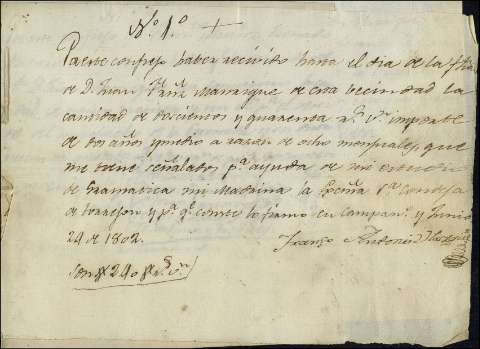 N.º 1.º
Patente confieso haber recivido hasta el dia de la fha
de D. Juan Manrique de esta becindad la
cantidad de doscientos y quarenta r.s v.n importe
de dos años y medio a razon de ocho mensuales, que
me tiene señalados p.a ayuda de mi estudio
de Gramatica mi Madrina la S.ra Condesa
de y p.a q.e conste lo firmo en y Junio
24 de 1802.
Antonio
Son 240 r.s v.n